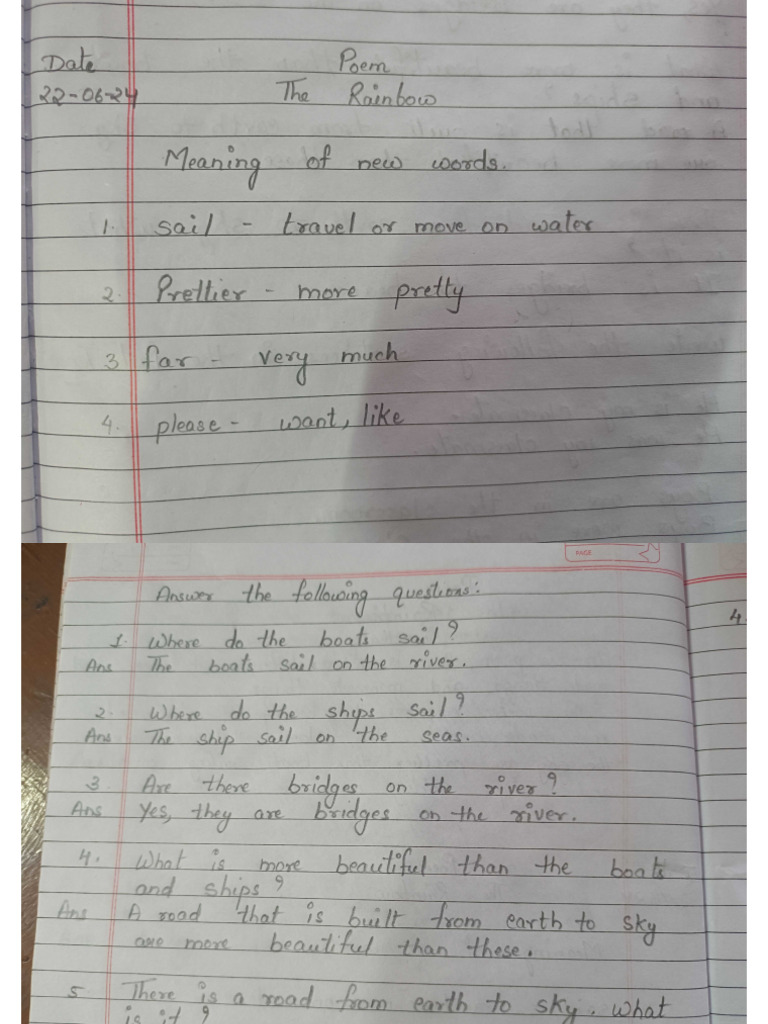 Date
Poem
22-06-24
The Rainbow
Meaning of new words.
1. sail - travel or move on water
2. Prettier - more pretty
3 far - very much
4. please - want, like
PAGE
Answer the following questions:
4.
1. Where do the boats sail?
Ans The boats sail on the river.
2. Where do the ships sail?
Ans The ship sail on the seas.
3. Are there bridges on the river?
Ans Yes, they are bridges on the river.
4. What is more beautiful than the boats
and ships?
Ans A road that is built from earth to sky
are more beautiful than these.
5 There is a road from earth to sky. What
is it?